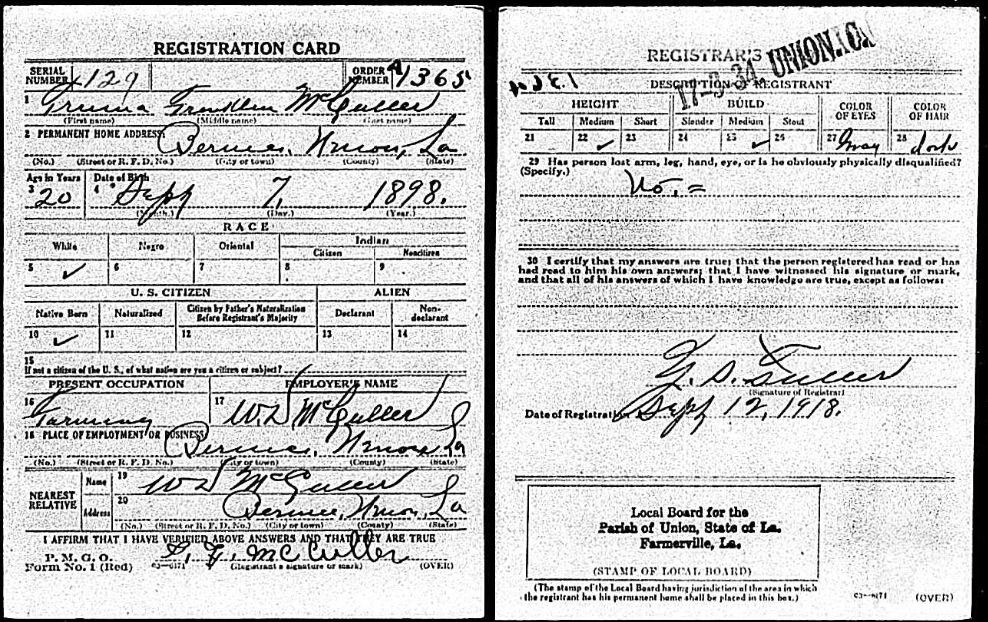 REGISTRATION CARD
SERIAL NUMBER 129
ORDER NUMBER A1365
1 Truma Franklin McCuller
(First name) (Middle name) (Last name)
2 PERMANENT HOME ADDRESS:
Bernice, Union, La
(No.) (Street or R. F. D. No.) (City or town) (County) (State)
Age in Years Date of Birth
3 20 4 Sept 7, 1898.
(Month.) (Day.) (Year.)
RACE
White Negro Oriental Indian
Citizen Noncitizen
5 ✓ 6 7 8 9
U. S. CITIZEN ALIEN
Native Born Naturalized Citizen by Father's Naturalization Before Registrant's Majority Declarant Non-declarant
10 ✓ 11 12 13 14
15
If not a citizen of the U. S., of what nation are you a citizen or subject?
PRESENT OCCUPATION EMPLOYER'S NAME
16 Farming 17 W. D McCuller
18 PLACE OF EMPLOYMENT OR BUSINESS
Bernice, Union, La
(No.) (Street or R. F. D. No.) (City or town) (County) (State)
NEAREST RELATIVE
Name 19 W D McCuller
Address 20 Bernice, Union, La
(No.) (Street or R. F. D. No.) (City or town) (County) (State)
I AFFIRM THAT I HAVE VERIFIED ABOVE ANSWERS AND THAT THEY ARE TRUE
P. M. G. O.
Form No. 1 (Red) 03-6171 (Registrant's signature or mark) (OVER)
McCuller
REGISTRAR'S
17-3-34, UNION.
DESCRIPTION OF REGISTRANT
HEIGHT BUILD COLOR OF EYES COLOR OF HAIR
Tall Medium Short Slender Medium Stout
21 22 ✓ 23 24 25 ✓ 26 27 Gray 28 dark
29 Has person lost arm, leg, hand, eye, or is he obviously physically disqualified?
(Specify.) No.
30 I certify that my answers are true; that the person registered has read or has had read to him his own answers; that I have witnessed his signature or mark, and that all of his answers of which I have knowledge are true, except as follows:
Fuller
(Signature of Registrar)
Date of Registration Sept 12, 1918.
Local Board for the
Parish of Union, State of La.
Farmerville, La.
(STAMP OF LOCAL BOARD)
(The stamp of the Local Board having jurisdiction of the area in which the registrant has his permanent home shall be placed in this box.)
03-6171 (OVER)